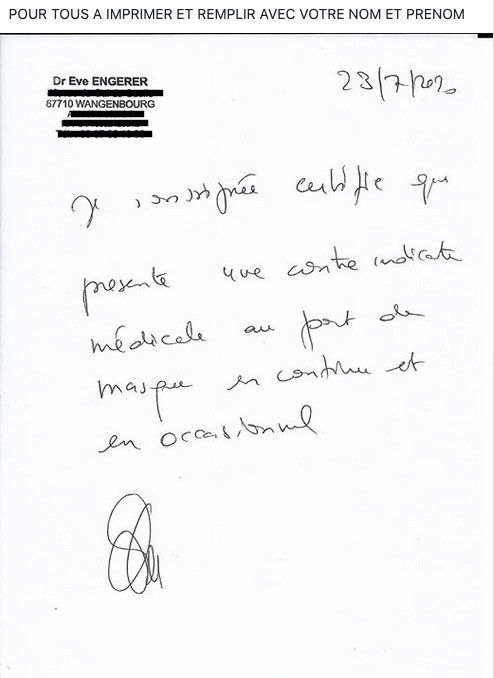 POUR TOUS A IMPRIMER ET REMPLIR AVEC VOTRE NOM ET PRENOM
Dr Eve ENGERER
67710 WANGENBOURG
23/7/2020
Je soussignée certifie que
présente une contre indicati
médicale au port de
masque en continu et
en occasionnel